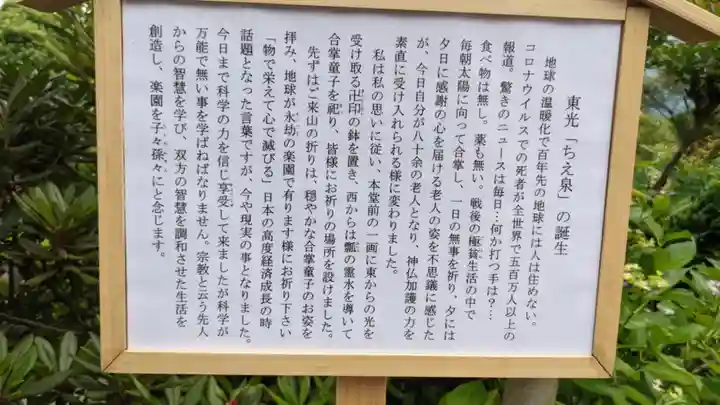 東光「ちえ泉」の誕生
地球の温暖化で百年先の地球には人は住めない。
コロナウイルスでの死者が全世界で五百万人以上の
報道。驚きのニュースは毎日…何か打つ手は?…
食べ物は無し。薬も無い。戦後の極貧生活の中で
毎朝太陽に向って合掌し、一日の無事を祈り、夕には
夕日に感謝の心を届ける老人の姿を不思議に感じた
が、今日自分が八十余の老人となり、神仏加護の力を
素直に受け入れられる様に変わりました。
私は私の思いに従い、本堂前の一画に東からの光を
受け取る卍印の鉢を置き、西からは瓢の霊水を導いて
合掌童子を祀り、皆様にお祈りの場所を設けました。
先ずはご来山の祈りは、穏やかな合掌童子のお姿を
拝み、地球が永劫の楽園で有ります様にお祈り下さい
「物で栄えて心で滅びる」日本の高度経済成長の時
話題となった言葉ですが、今や現実の事となりました。
今日まで科学の力を信じ享受して来ましたが科学が
万能で無い事を学ばねばなりません。宗教と云う先人
からの智慧を学び、双方の智慧を調和させた生活を
創造し、楽園を子々孫々にと念じます。